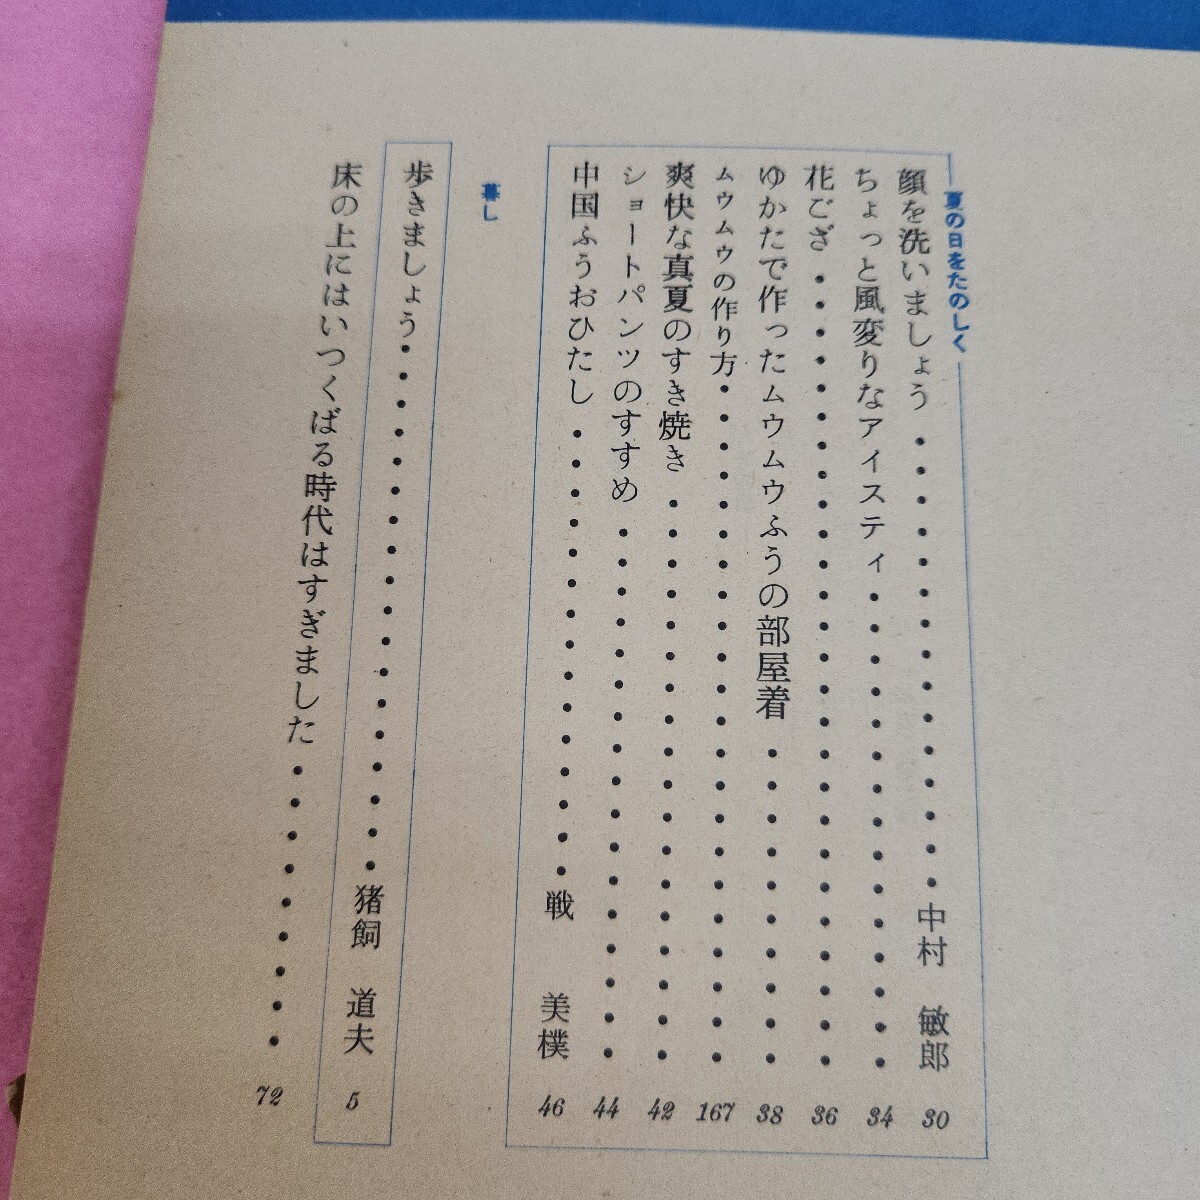 夏の日をたのしく
顔を洗いましょう・・・・・・・・・・・・・・・中村 敏郎 30
ちょっと風変りなアイスティ・・・・・・・・・・・・・・・ 34
花ござ・・・・・・・・・・・・・・・・・・・・・・・・・・ 36
ゆかたで作ったムウムウふうの部屋着・・・・・・・・・・ 38
ムウムウの作り方・・・・・・・・・・・・・・・・・・・・・ 167
爽快な真夏のすき焼き・・・・・・・・・・・・・・・・・・ 42
ショートパンツのすすめ・・・・・・・・・・・・・・・・・ 44
中国ふうおひたし・・・・・・・・・・・・・・・戦 美樸 46
暮し
歩きましょう・・・・・・・・・・・・・・・・・・猪飼 道夫 5
床の上にはいつくばる時代はすぎました・・・・・・・・・ 72